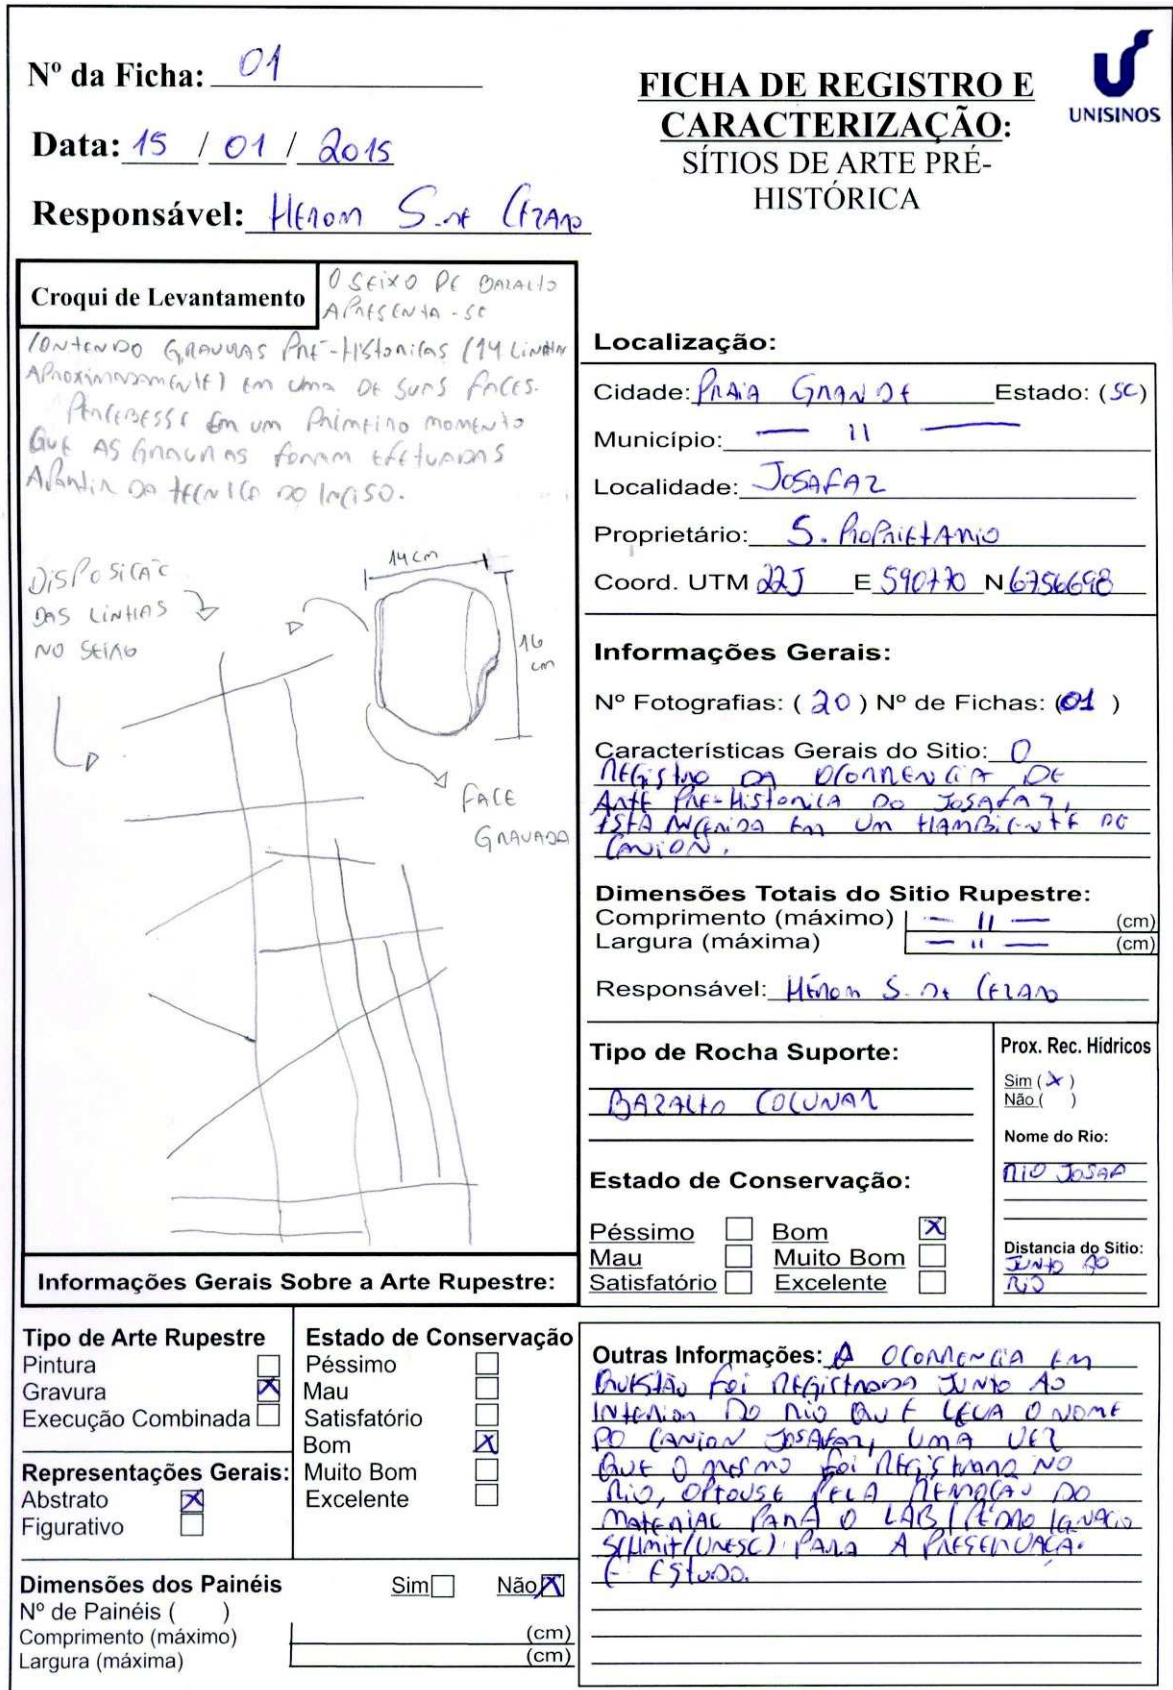 Nº da Ficha: 01
Data: 15 / 01 / 2015
Responsável: HEROM S. DE CEZARO
FICHA DE REGISTRO E
CARACTERIZAÇÃO:
SÍTIOS DE ARTE PRÉ-
HISTÓRICA
UNISINOS
Croqui de Levantamento
O SEIXO DE BAZALTO
APRESENTA-SE
CONTENDO GRAVURAS PRÉ-HISTORICAS (14 LINHAS
APROXIMADAMENTE) EM UMA DE SUAS FACES.
PERCEBESSE EM UM PRIMEIRO MOMENTO
QUE AS GRAVURAS FORAM EFETUADAS
APARTIR DA TECNICA DO INCISO.
DISPOSICAO
DAS LINHAS
NO SEIXO
14 cm
16
cm
FACE
GRAVADA
Localização:
Cidade: PRAIA GRANDE Estado: (SC)
Município: — 11 —
Localidade: JOSAFAZ
Proprietário: S. PROPRIETARIO
Coord. UTM 22J E 590770 N 6756698
Informações Gerais:
Nº Fotografias: ( 20 ) Nº de Fichas: (01 )
Características Gerais do Sitio: O
REGISTRO DA OCORRENCIA DE
ARTE PRE-HISTORICA DO JOSAFAZ,
ESTA INCERIDA EM UM HAMBIENTE DE
CANION.
Dimensões Totais do Sitio Rupestre:
Comprimento (máximo) — 11 — (cm)
Largura (máxima) — 11 — (cm)
Responsável: HÉROM S. DE CEZARO
Tipo de Rocha Suporte:
BAZALTO COLUNAR
Prox. Rec. Hídricos
Sim ( X )
Não ( )
Nome do Rio:
RIO JOSAF
Distancia do Sitio:
JUNTO AO
RIO
Estado de Conservação:
Péssimo Bom X
Mau Muito Bom
Satisfatório Excelente
Informações Gerais Sobre a Arte Rupestre:
Tipo de Arte Rupestre
Pintura
Gravura X
Execução Combinada
Representações Gerais:
Abstrato X
Figurativo
Estado de Conservação
Péssimo
Mau
Satisfatório
Bom X
Muito Bom
Excelente
Dimensões dos Painéis Sim Não X
Nº de Painéis ( )
Comprimento (máximo) (cm)
Largura (máxima) (cm)
Outras Informações: A OCORRENCIA EM
QUESTÃO FOI REGISTRADA JUNTO AO
INTERIOR DO RIO QUE LEVA O NOME
DO CANION JOSAFAZ, UMA VEZ
QUE O MESMO FOI REGISTRADO NO
RIO, OPTOUSE PELA REMOÇAO DO
MATERIAL PARA O LAB/PEDRO IGNACIO
SCHMIT (UNESC) PARA A PRESERVAÇA.
E ESTUDO.